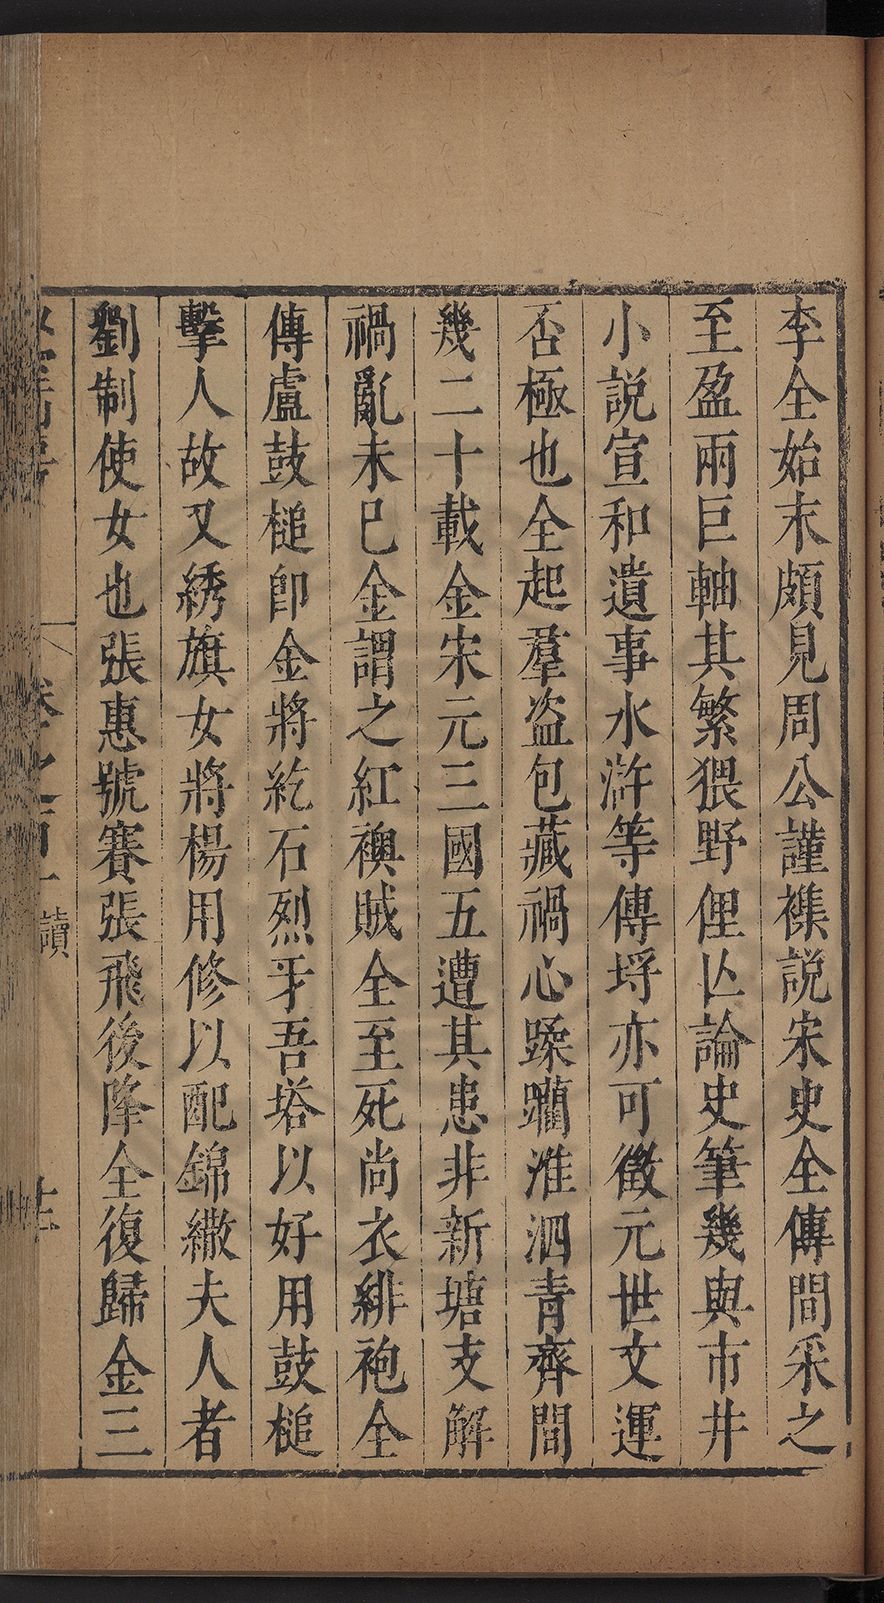 李全始末頗見周公謹襍説宋史全傳間采之
至盈兩巨軸其繁猥野俚匕論史筆幾與市井
小説宣和遺事水滸等傳埒亦可徵元世文運
否極也全起羣盜包藏禍心蹂躪淮泗青齊間
幾二十載金宋元三國五遭其患非新塘支解
禍亂未已金謂之紅襖賊全至死尚衣緋袍全
傳盧鼓槌卽金將紇石烈牙吾塔以好用鼓槌
擊人故又綉旗女將楊用修以配錦繖夫人者
劉制使女也張惠號賽張飛後降全復歸金三
續